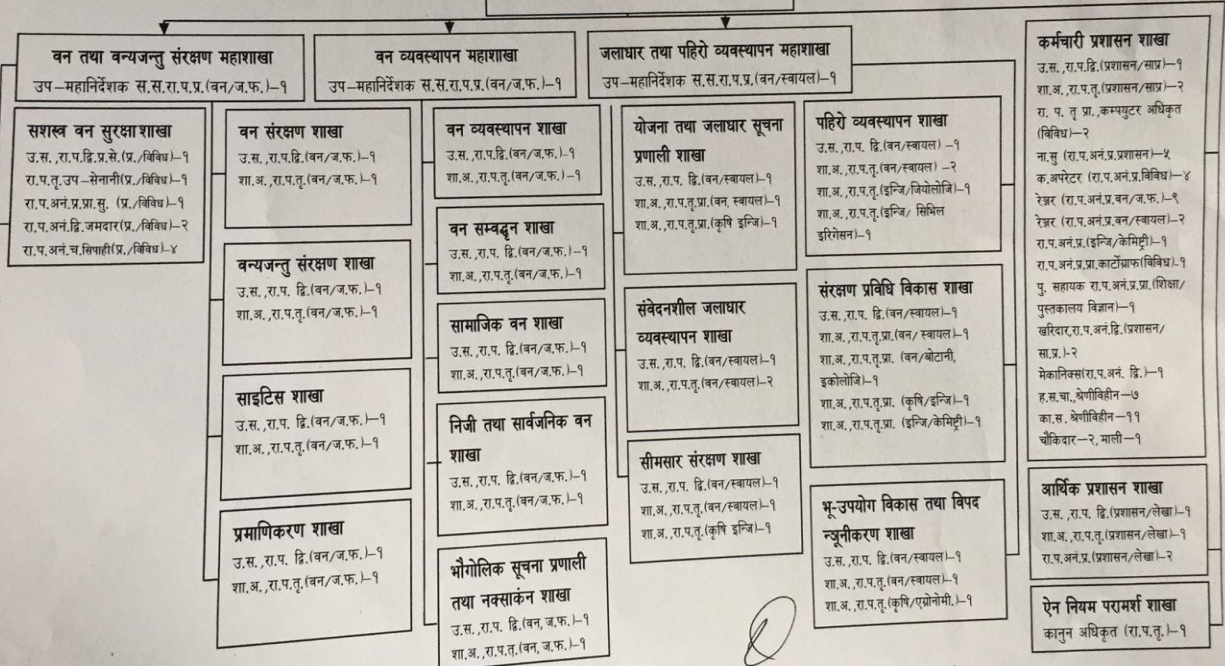 वन तथा वन्यजन्तु संरक्षण महाशाखा
उप-महानिर्देशक स.स.रा.प.प्र.(वन/ज.फ.)-१
वन व्यवस्थापन महाशाखा
उप-महानिर्देशक स.स.रा.प.प्र.(वन/ज.फ.)-१
जलाधार तथा पहिरो व्यवस्थापन महाशाखा
उप-महानिर्देशक स.स.रा.प.प्र.(वन/स्वायल)-१
सशस्त्र वन सुरक्षा शाखा
उ.स.,रा.प.द्वि.प्र.से.(प्र./विविध)-१
रा.प.तृ.उप-सेनानी(प्र./विविध)-१
रा.प.अनं.प्र.प्रा.सु. (प्र./विविध)-१
रा.प.अनं.द्वि.जमदार(प्र./विविध)-२
रा.प.अनं.च.सिपाही(प्र./विविध)-४
वन संरक्षण शाखा
उ.स.,रा.प.द्वि.(वन/ज.फ.)-१
शा.अ.,रा.प.तृ.(वन/ज.फ.)-१
वन्यजन्तु संरक्षण शाखा
उ.स.,रा.प. द्वि.(वन/ज.फ.)-१
शा.अ.,रा.प.तृ.(वन/ज.फ.)-१
साइटिस शाखा
उ.स.,रा.प. द्वि.(वन/ज.फ.)-१
शा.अ.,रा.प.तृ.(वन/ज.फ.)-१
प्रमाणिकरण शाखा
उ.स.,रा.प. द्वि.(वन/ज.फ.)-१
शा.अ.,रा.प.तृ.(वन/ज.फ.)-१
वन व्यवस्थापन शाखा
उ.स.,रा.प.द्वि.(वन/ज.फ.)-१
शा.अ.,रा.प.तृ.(वन/ज.फ.)-१
वन सम्वद्धन शाखा
उ.स.,रा.प. द्वि.(वन/ज.फ.)-१
शा.अ.,रा.प.तृ.(वन/ज.फ.)-१
सामाजिक वन शाखा
उ.स.,रा.प. द्वि.(वन/ज.फ.)-१
शा.अ.,रा.प.तृ.(वन/ज.फ.)-१
निजी तथा सार्वजनिक वन
शाखा
उ.स.,रा.प. द्वि.(वन/ज.फ.)-१
शा.अ.,रा.प.तृ.(वन/ज.फ.)-१
भौगोलिक सूचना प्रणाली
तथा नक्साकंन शाखा
उ.स.,रा.प. द्वि.(वन,ज.फ.)-१
शा.अ.,रा.प.तृ.(वन,ज.फ.)-१
योजना तथा जलाधार सूचना
प्रणाली शाखा
उ.स.,रा.प. द्वि.(वन/स्वायल)-१
शा.अ.,रा.प.तृ.प्रा.(वन,स्वायल)-१
शा.अ.,रा.प.तृ.प्रा.(कृषि इन्जि)-१
संवेदनशील जलाधार
व्यवस्थापन शाखा
उ.स.,रा.प. द्वि.(वन/स्वायल)-१
शा.अ.,रा.प.तृ.(वन/स्वायल)-२
सीमसार संरक्षण शाखा
उ.स.,रा.प. द्वि.(वन/स्वायल)-१
शा.अ.,रा.प.तृ.(वन/स्वायल)-१
शा.अ.,रा.प.तृ.(कृषि इन्जि)-१
पहिरो व्यवस्थापन शाखा
उ.स.,रा.प. द्वि.(वन/स्वायल) -१
शा.अ.,रा.प.तृ.(वन/स्वायल) -२
शा.अ.,रा.प.तृ.(इन्जि/जियोलोजि)-१
शा.अ.,रा.प.तृ.(इन्जि/ सिभिल
इरिगेसन)-१
संरक्षण प्रविधि विकास शाखा
उ.स.,रा.प. द्वि.(वन/स्वायल)-१
शा.अ.,रा.प.तृ.प्रा.(वन/ स्वायल)-१
शा.अ.,रा.प.तृ.प्रा. (वन/बोटानी,
इकोलोजि)-१
शा.अ.,रा.प.तृ.प्रा. (कृषि/इन्जि)-१
शा.अ.,रा.प.तृ.प्रा. (इन्जि/केमिष्ट्री)-१
भू-उपयोग विकास तथा विपद
न्यूनीकरण शाखा
उ.स.,रा.प. द्वि.(वन/स्वायल)-१
शा.अ.,रा.प.तृ.(वन/स्वायल)-१
शा.अ.,रा.प.तृ.(कृषि/एग्रोनोमी.)-१
कर्मचारी प्रशासन शाखा
उ.स.,रा.प.द्वि.(प्रशासन/साप्र)-१
शा.अ.,रा.प.तृ.(प्रशासन/साप्र)-२
रा. प. तृ प्रा.,कम्पयुटर अधिकृत
(विविध)-२
ना.सु (रा.प.अनं.प्र.प्रशासन)-५
क.अपरेटर (रा.प.अनं.प्र.विविध)-४
रेञ्जर (रा.प.अनं.प्र.वन/ज.फ.)-९
रेञ्जर (रा.प.अनं.प्र.वन/स्वायल)-२
रा.प.अनं.प्र.(इन्जि/केमिष्ट्री)-१
रा.प.अनं.प्र.प्रा.कार्टोग्राफ(विविध)-१
पु. सहायक रा.प.अनं.प्र.प्रा.(शिक्षा/
पुस्तकालय विज्ञान)-१
खरिदार,रा.प.अनं.द्वि.(प्रशासन/
सा.प्र.)-२
मेकानिक्स(रा.प.अनं. द्वि.)-१
ह.स.चा.,श्रेणीविहीन-७
का.स. श्रेणीविहीन-११
चौकिदार-२, माली-१
आर्थिक प्रशासन शाखा
उ.स.,रा.प. द्वि.(प्रशासन/लेखा)-१
शा.अ.,रा.प.तृ.(प्रशासन/लेखा)-१
रा.प.अनं.प्र.(प्रशासन/लेखा)-२
ऐन नियम परामर्श शाखा
कानुन अधिकृत (रा.प.तृ.)-१